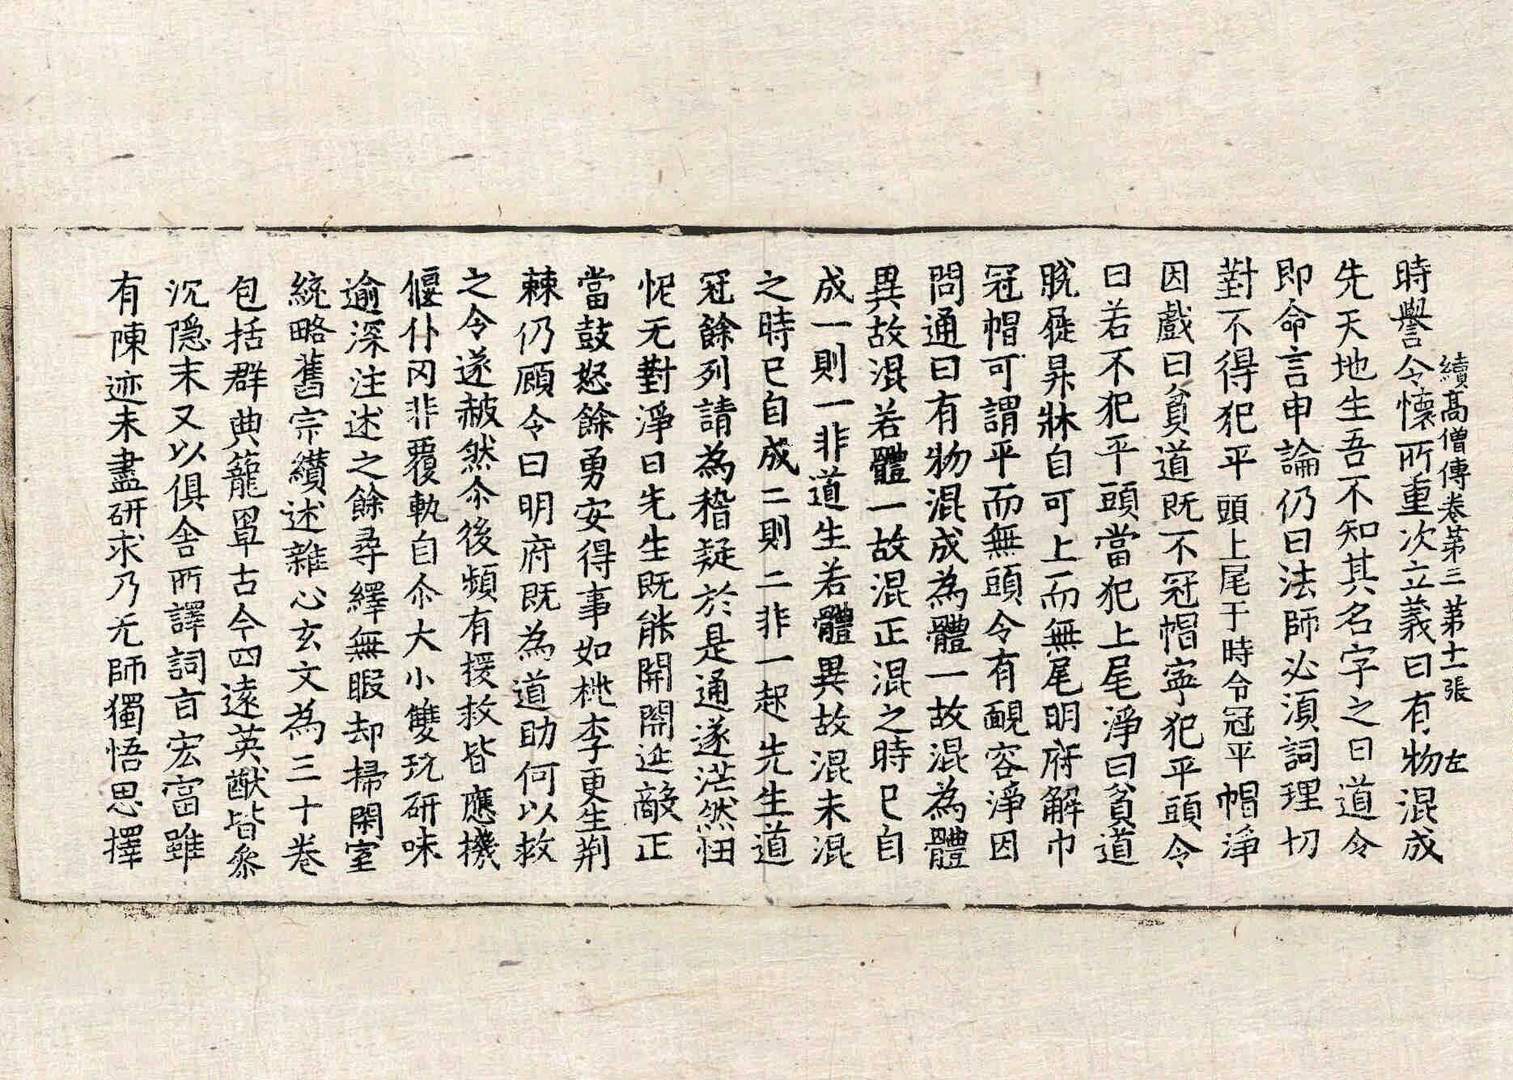 續高僧傳卷第三 第十一張 左
時譽令懷所重次立義曰有物混成
先天地生吾不知其名字之曰道令
即命言申論仍曰法師必須詞理切
對不得犯平頭上尾于時令冠平帽淨
因戲曰貧道既不冠帽寧犯平頭令
曰若不犯平頭當犯上尾淨曰貧道
脫屣昇牀自可上而無尾明府解巾
冠帽可謂平而無頭令有靦容淨因
問通曰有物混成為體一故混為體
異故混若體一故混正混之時已自
成一則一非道生若體異故混未混
之時已自成二則二非一起先生道
冠餘列請為稽疑於是通遂茫然忸
怩无對淨曰先生既能開關延敵正
當鼓怒餘勇安得事如桃李更生荊
棘仍顧令曰明府既為道助何以救
之令遂赧然尒後頻有援救皆應機
偃仆罔非覆軌自尒大小雙玩研味
逾深注述之餘尋繹無暇却掃閑室
統略舊宗纘述雜心玄文為三十卷
包括群典籠罩古今四遠英猷皆參
沉隱末又以俱舍所譯詞旨宏富雖
有陳迹未盡研求乃无師獨悟思擇